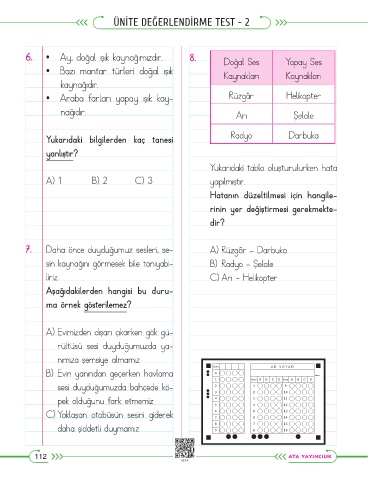 ÜNİTE DEĞERLENDİRME TEST - 2
6. • Ay, doğal ışık kaynağımızdır.
• Bazı mantar türleri doğal ışık
kaynağıdır.
• Araba farları yapay ışık kay-
nağıdır.
Yukarıdaki bilgilerden kaç tanesi
yanlıştır?
A) 1 B) 2 C) 3
7. Daha önce duyduğumuz sesleri, se-
sin kaynağını görmesek bile tanıyabi-
liriz.
Aşağıdakilerden hangisi bu duru-
ma örnek gösterilemez?
A) Evimizden dışarı çıkarken gök gü-
rültüsü sesi duyduğumuzda ya-
nımıza şemsiye almamız
B) Evin yanından geçerken havlama
sesi duyduğumuzda bahçede kö-
pek olduğunu fark etmemiz
C) Yaklaşan otobüsün sesini giderek
daha şiddetli duymamız
8.
Doğal Ses Kaynakları Yapay Ses Kaynakları
Rüzgâr Helikopter
Arı Şelale
Radyo Darbuka
Yukarıdaki tablo oluşturulurken hata
yapılmıştır.
Hatanın düzeltilmesi için hangile-
rinin yer değiştirmesi gerekmekte-
dir?
A) Rüzgâr - Darbuka
B) Radyo - Şelale
C) Arı - Helikopter
AD SOYAD
112
ATA YAYINCILIK